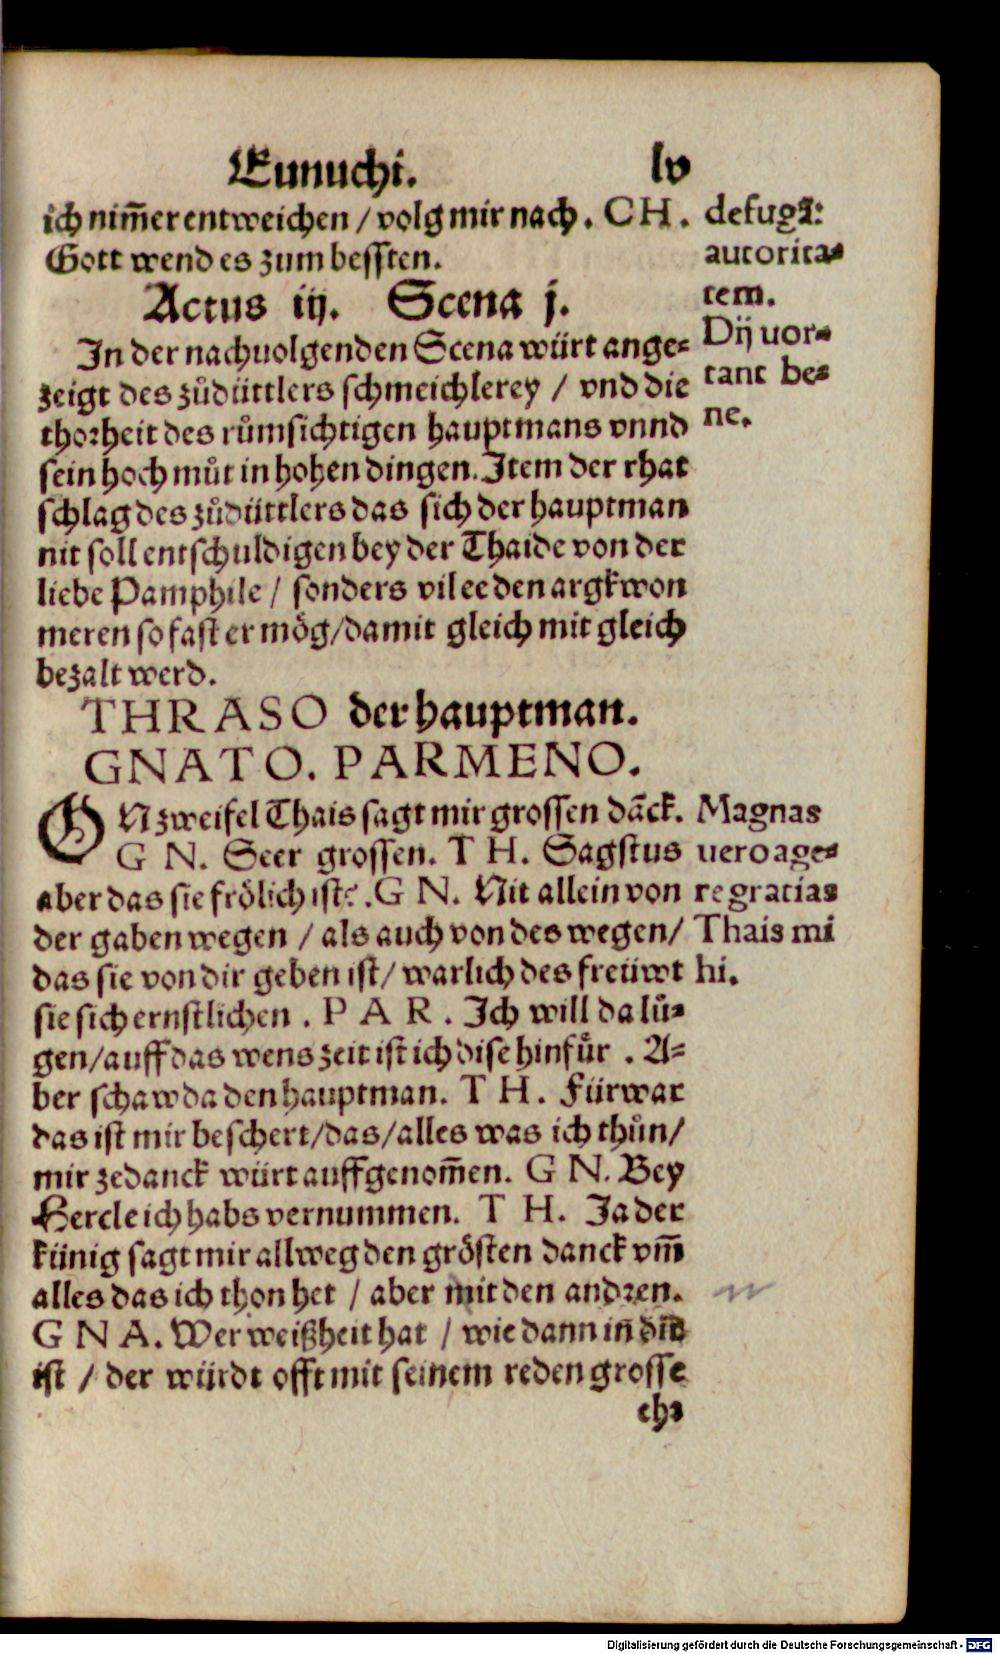 Eunuchi. lv
ich nim̃er entweichen / volg mir nach. CH.
Gott wend es zum bessten.
Actus iij. Scena j.
In der nachuolgenden Scena würt ange=
zeigt des zůdüttlers schmeichlerey / vnd die
thorheit des růmsichtigen hauptmans vnnd
sein hoch můt in hohen dingen. Item der rhat
schlag des zůdüttlers das sich der hauptman
nit soll entschuldigen bey der Thaide von der
liebe Pamphile / sonders vil ee den argkwon
meren so fast er mög/damit gleich mit gleich
bezalt werd.
THRASO der hauptman.
GNATO. PARMENO.
ON zweifel Thais sagt mir grossen dãck.
G N. Seer grossen. T H. Sagstus
aber das sie frölich ist? .G N. Nit allein von
der gaben wegen / als auch von des wegen/
das sie von dir geben ist/ warlich des freüwt
sie sich ernstlichen . P A R . Ich will da lů=
gen/auff das wens zeit ist ich dise hinfůr . A=
ber schaw da den hauptman. T H . Fürwar
das ist mir beschert/das/alles was ich thůn/
mir ze danck würt auffgenom̃en. G N. Bey
Hercle ich habs vernummen. T H. Ja der
künig sagt mir allweg den grösten danck vm̃
alles das ich thon het / aber mit den andren.
G N A. Wer weißheit hat / wie dann in dir
ist / der würdt offt mit seinem reden grosse
eh=
defugã:
autorita=
tem.
Dij uor=
tant be=
ne.
Magnas
uero age=
re gratias
Thais mi
hi.
Digitalisierung gefördert durch die Deutsche Forschungsgemeinschaft - DFG